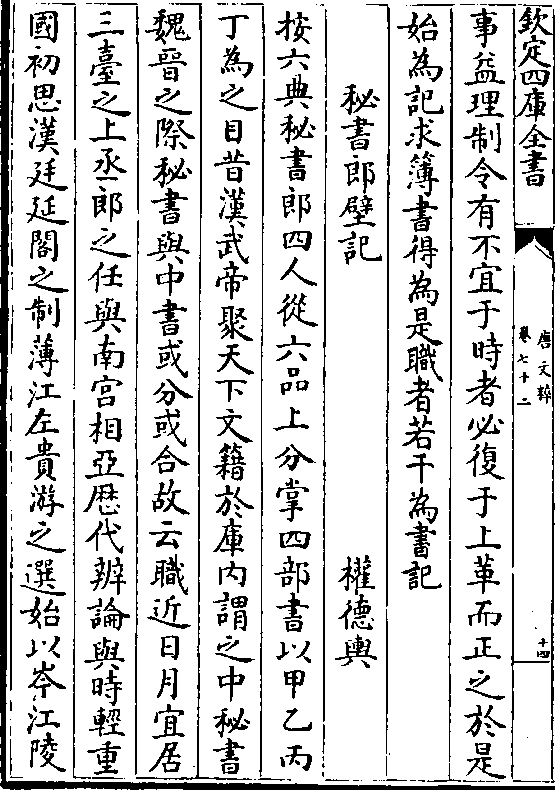 欽定四庫全書
唐文粹
卷七十二
十四
事益理制令有不宜于時者必復于上革而正之於是
始為記求簿書得為是職者若干為書記
秘書郎壁記
權德輿
按六典秘書郎四人從六品上分掌四部書以甲乙丙
丁為之目昔漢武帝聚天下文籍於庫内謂之中秘書
魏晉之際秘書與中書或分或合故云職近日月宜居
三臺之上丞郎之任與南宫相亞歴代辨論與時輕重
國初思漢廷延閣之制薄江左貴游之選始以岑江陵